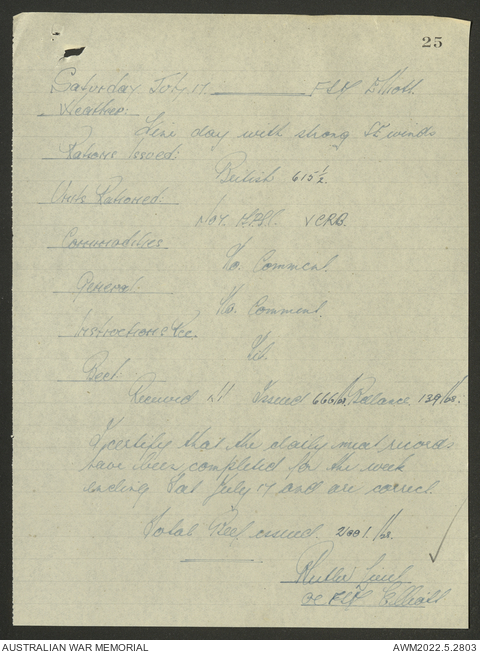 25
Saturday July 17. FSD Elliott.
Weather:
Fine day with strong SE winds
Rations Issued:
British 615½.
Units Rationed
No. Comment.
Commodities
General.
No. Comment.
Instructions Rec.
Nil.
Beef.
Received Nil Issued 666 lbs, Balance 139 lbs.
I certify that the daily meat records
have been completed for the week
ending Sat July 17 and are correct.
Total Beef issued. lbs.
Elliott
AUSTRALIAN WAR MEMORIAL
AWM2022.5.2803